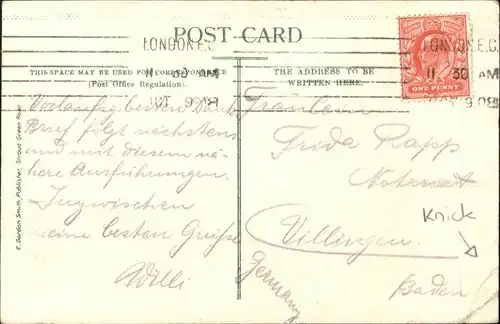 POST CARD
LONDON.E.C.
LONDON.E.C.
11 30 AM
11 30 AM
THIS SPACE MAY BE USED FOR CORRESPONDENCE
(Post Office Regulation).
THE ADDRESS TO BE
WRITTEN HERE.
OCT 9 08
9 08
ONE PENNY
Vorläufig besten Dank
Brief folgt nächstens
und mit diesem nä-
here Ausführungen.
Inzwischen
meine besten Grüsse
Willi
Fräulein
Frida Rapp
Notariat
Villingen.
Baden
Germany
Knick
F. Gordon Smith, Publisher, Stroud Green Road